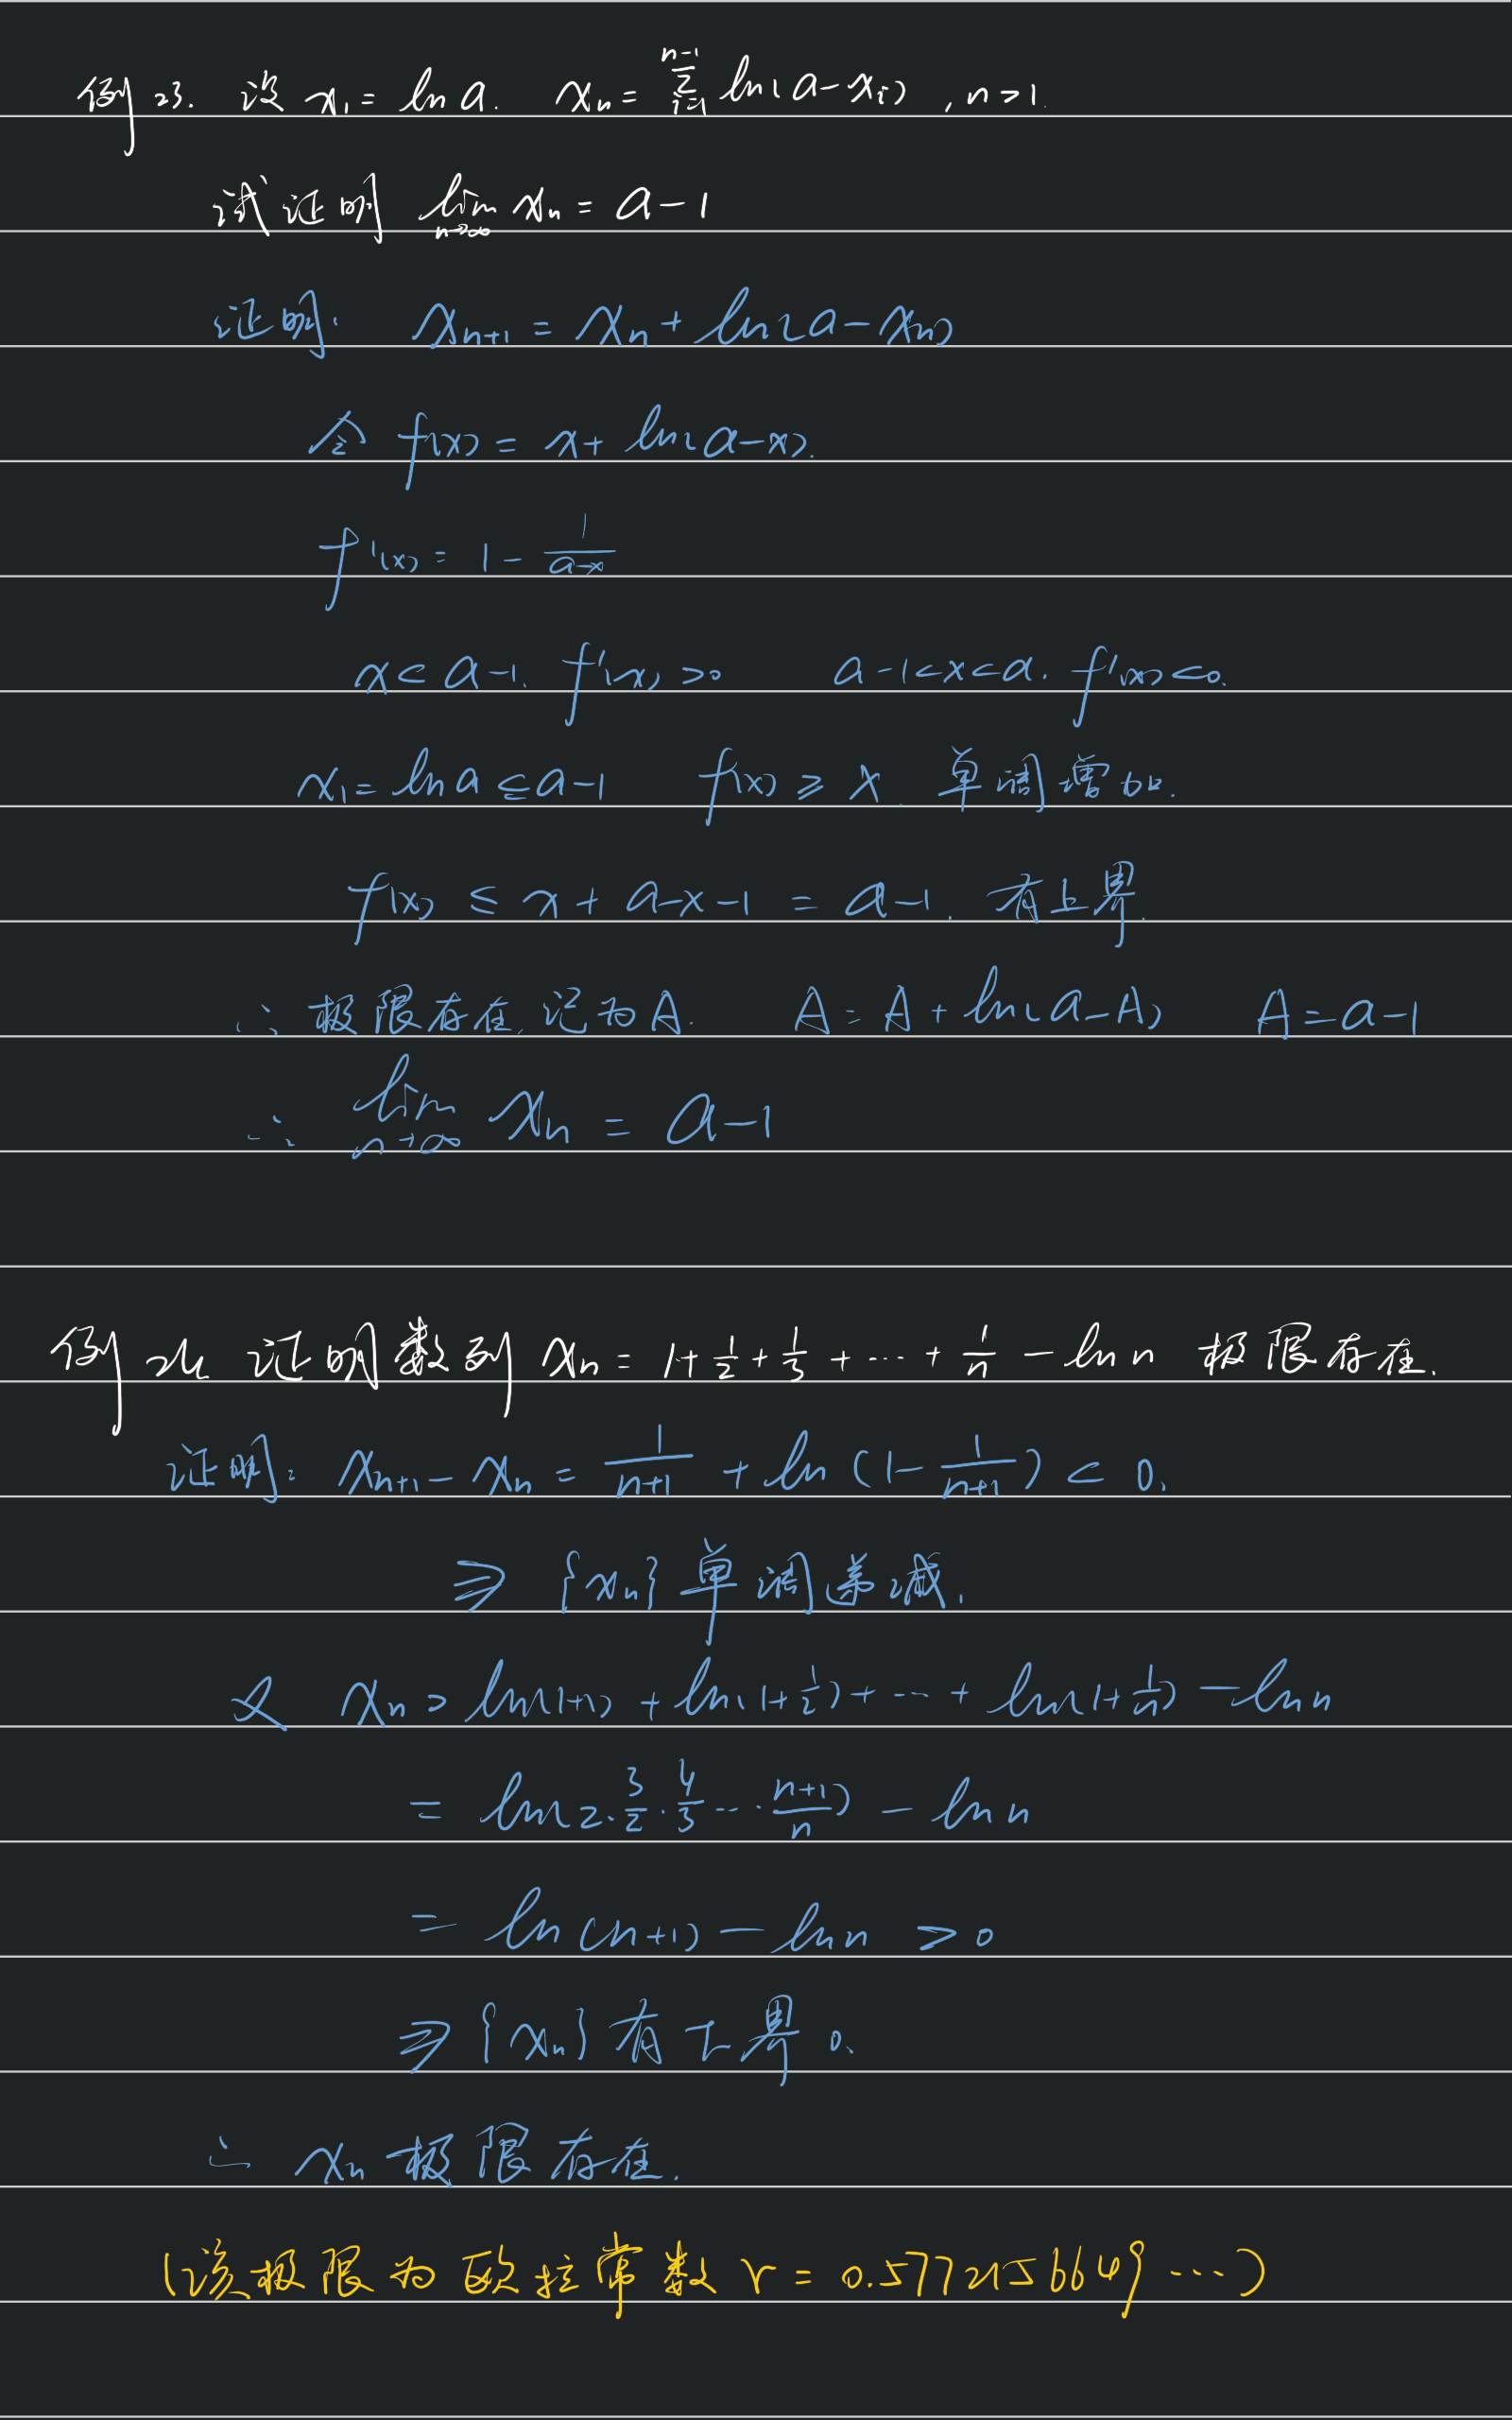 例23. 设 x₁ = ln a. xₙ = ∑_{i=1}^{n-1} ln(a-xᵢ), n>1.
试证明 lim_{n→∞} xₙ = a-1
证明: xₙ₊₁ = xₙ + ln(a-xₙ)
令 f(x) = x + ln(a-x).
f'(x) = 1 - 1/(a-x)
x<a-1. f'(x)>0 a-1<x<a. f'(x)<0.
x₁ = ln a ≤ a-1 f(x) ≥ x. 单调增加.
f(x) ≤ x + a-x-1 = a-1. 有上界.
∴ 极限存在, 记为A. A = A + ln(a-A) A = a-1
∴ lim_{n→∞} xₙ = a-1
例24 证明数列 xₙ = 1+1/2+1/3+⋯+1/n - ln n 极限存在.
证明: xₙ₊₁ - xₙ = 1/(n+1) + ln(1 - 1/(n+1)) < 0.
⇒ {xₙ} 单调递减.
又 xₙ > ln(1+1) + ln(1+1/2) + ⋯ + ln(1+1/n) - ln n
= ln(2·3/2·4/3⋯·(n+1)/n) - ln n
= ln(n+1) - ln n > 0
⇒ {xₙ} 有下界 0.
∴ xₙ 极限存在.
(该极限为欧拉常数 γ = 0.5772156649⋯)